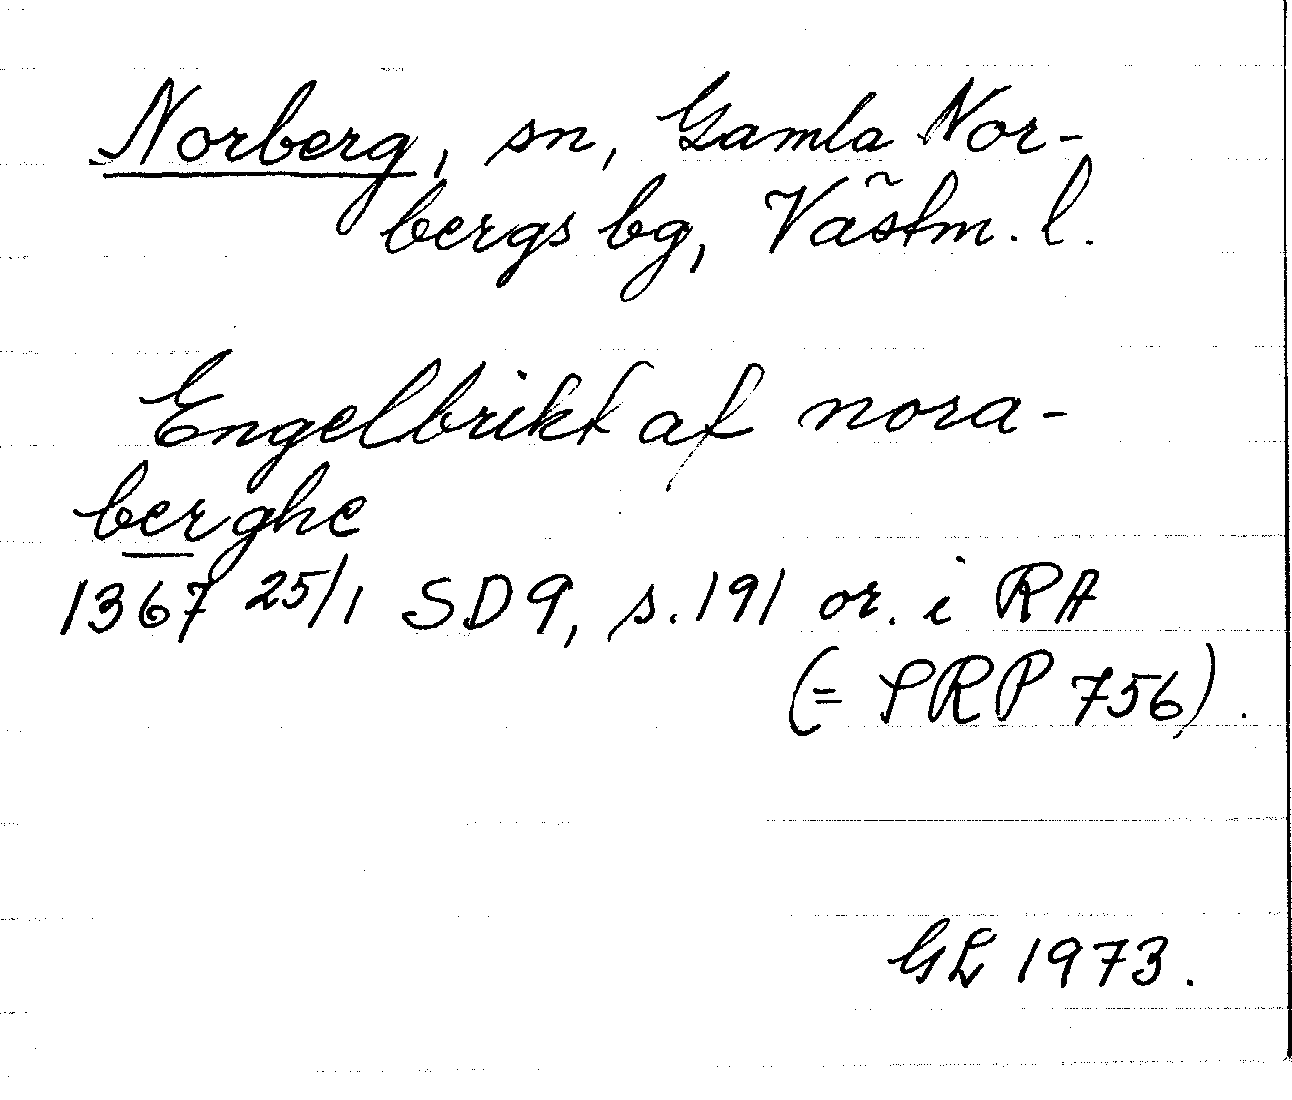 Norberg, sn, Gamla Nor-
bergs bg, Västm. l.
Engelbrikt af nora-
berghe
1367 25/1 SD 9, s. 191 or. i RA
(= SRP 756).
GL 1973.